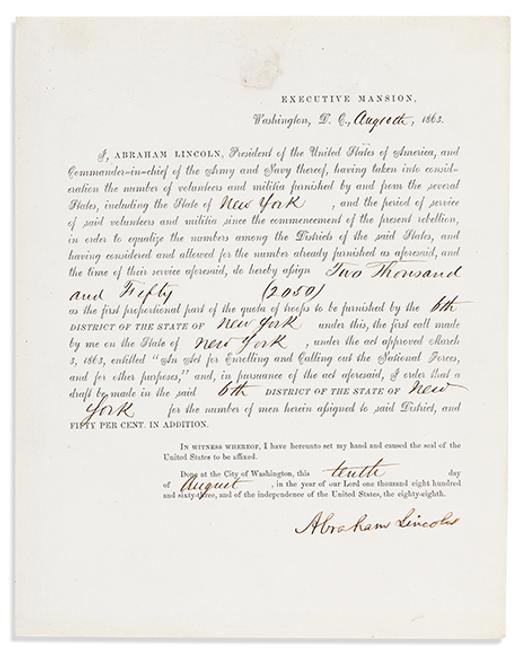 EXECUTIVE MANSION,
Washington, D. C., August 10th, 1863.
I, ABRAHAM LINCOLN, President of the United States of America, and
Commander-in-chief of the Army and Navy thereof, having taken into consid-
eration the number of volunteers and militia furnished by and from the several
States, including the State of New York , and the period of service
of said volunteers and militia since the commencement of the present rebellion,
in order to equalize the numbers among the Districts of the said States, and
having considered and allowed for the number already furnished as aforesaid, and
the time of their service aforesaid, do hereby assign Two Thousand
and Fifty (2050)
as the first proportional part of the quota of troops to be furnished by the 6th
DISTRICT OF THE STATE OF New York under this, the first call made
by me on the State of New York , under the act approved March
3, 1863, entitled "An Act for Enrolling and Calling out the National Forces,
and for other purposes," and, in pursuance of the act aforesaid, I order that a
draft be made in the said 6th DISTRICT OF THE STATE OF New
York for the number of men herein assigned to said District, and
FIFTY PER CENT. IN ADDITION.
IN WITNESS WHEREOF, I have hereunto set my hand and caused the seal of the
United States to be affixed.
Done at the City of Washington, this tenth day
of August , in the year of our Lord one thousand eight hundred
and sixty-three, and of the independence of the United States, the eighty-eighth.
Abraham Lincoln